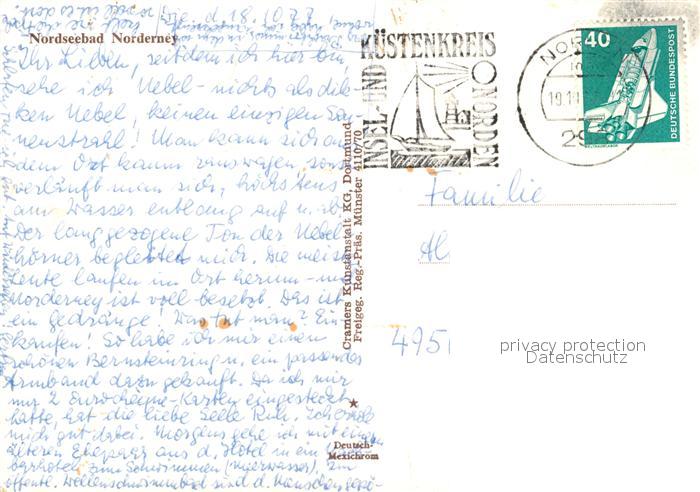 Nordseebad Norderney
Ihr Lieben, seitdem ich hier bin,
sehe ich Nebel - nichts als dik-
ken Nebel, keinen einzigen Son-
nenstrahl! Man kann sich aus
dem Ort kaum rauswagen, sonst
verläuft man sich, höchstens
am Wasser entlang auf u. ab.
Der langgezogene Ton der Nebel-
hörner begleitet mich. Die meisten
Leute laufen im Ort herum - und
Norderney ist voll besetzt. Das ist
ein Gedränge! Was tut man? Ein-
kaufen! So habe ich mir einen
schönen Bernsteinring u. ein passendes
Armband dazu gekauft. Da ich mir
nur 2 Eurocheque-Karten eingesteckt
hatte, hat die liebe Seele Ruh. Ich
mich gut dabei. Morgens gehe ich mit einem
älteren Ehepaar aus d. Hotel in ein
zum Schwimmen (Meerwasser). Im
öffentl. Wellenschwimmbad sind d. Menschen
Cramers Kunstanstalt KG, Dortmund
Freigeg. Reg.-Präs. Münster 4110/70
Deutsch-
Mexichrom
INSEL- UND KÜSTENKREIS NORDEN
NOR
19.11
298
40
DEUTSCHE BUNDESPOST
Familie
Al
495
privacy protection
Datenschutz